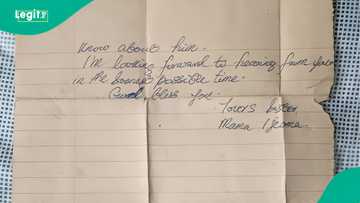 Legit
know about him.
I'm looking forward to hearing from you
in the possible time.
God, bless you.
Yours sister,
Mama Ijeoma.